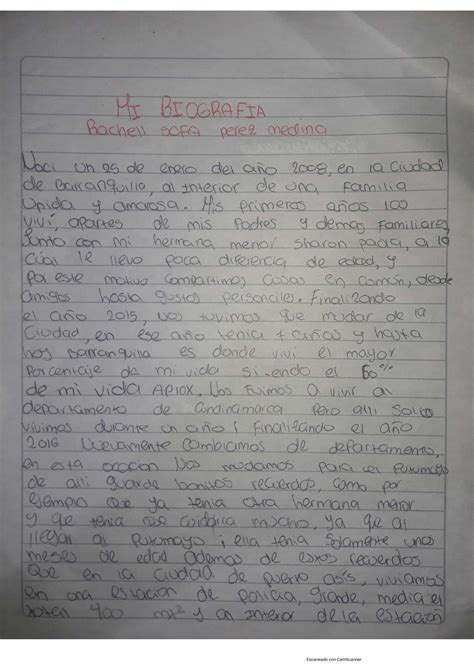 MI BIOGRAFIA
Rachell sofia perez medina
Naci un 25 de enero del año 2008, en la Ciudad
de Barranquilla, al interior de una familia
Unida y amorosa. Mis primeros años los
viví, apartes de mis Padres y demas Familiares,
Junto con mi hermana menor sharon paola, a la
cual le llevo poca diferencia de edad, y
por este motivo compartimos cosas en común, desde
amigos hasta gustos personales. Finalizando
el año 2015, nos tuvimos que mudar de la
Ciudad, en ese año tenia 7 años y hasta
hoy barranquilla es donde viví el mayor
Porcentaje de mi vida siendo el 60%
de mi vida Aprox. Nos fuimos a vivir al
departamento de Cundinamarca Pero alli Solo
vivimos durante un año; Finalizando el año
2016 Nuevamente cambiamos de departamento,
en esta ocacion Nos mudamos para el Putumayo
de alli guarde bonitos recuerdos, como por
ejemplo que ya tenia otra hermana menor
y que tenia que cuidarla mucho, ya que al
llegar al Putumayo; ella tenia Solamente unos
meses de edad ademas de estos recuerdos
que en la ciudad de puerto asís, viviamos
en una estacion de policia, grande, media el
total 400 mt² y al interior de la estación
Escaneado con CamScanner